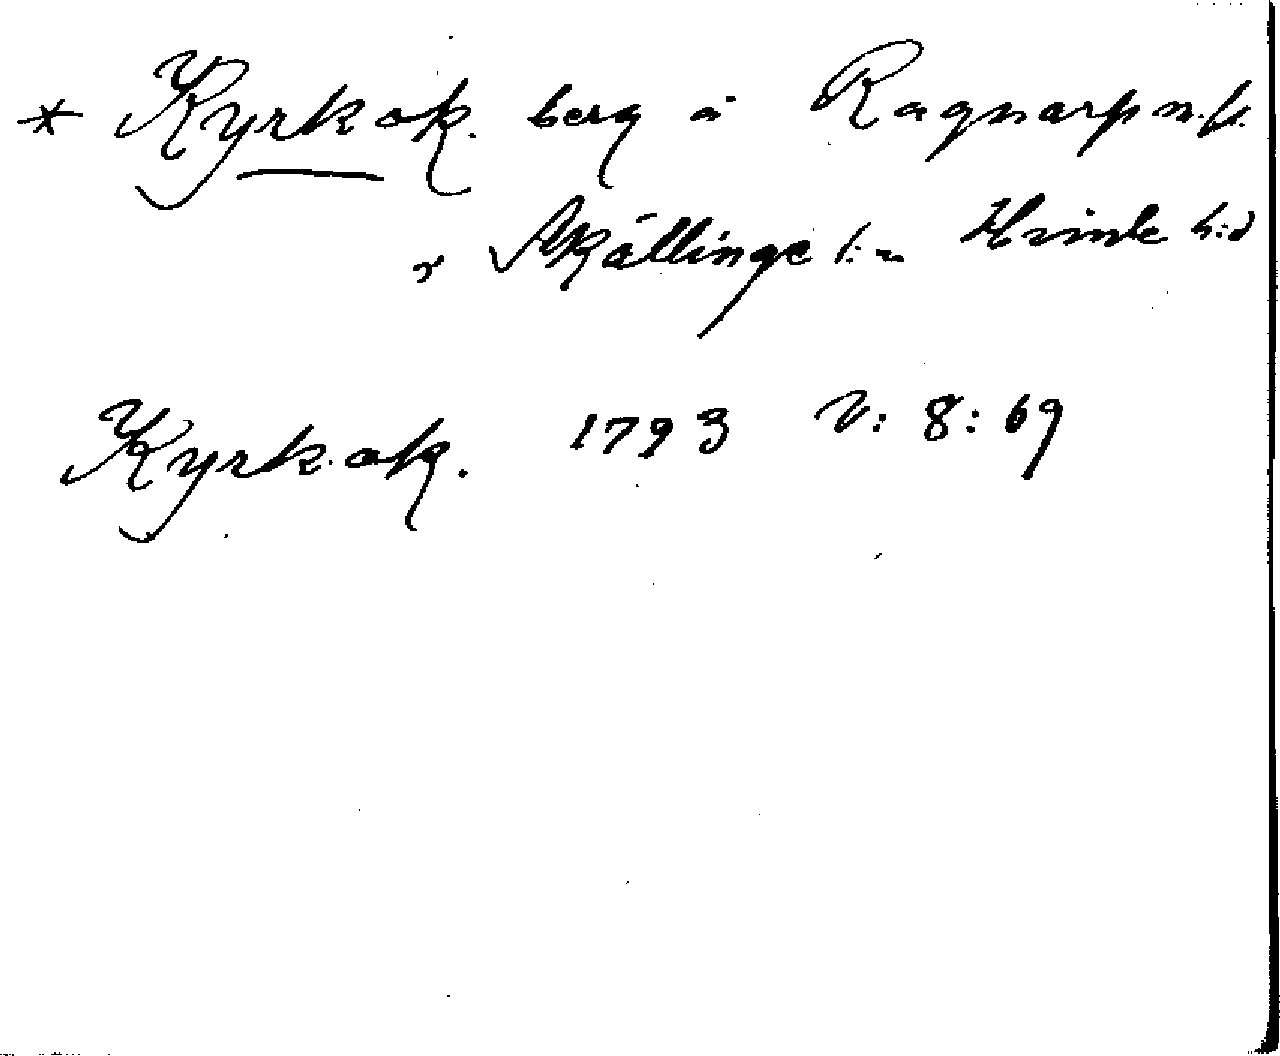 * Kyrkok. berg å Ragnarp n.fr.
v Skällinge s:n Himle h:d
Kyrkok. 1793 V: 8: 69